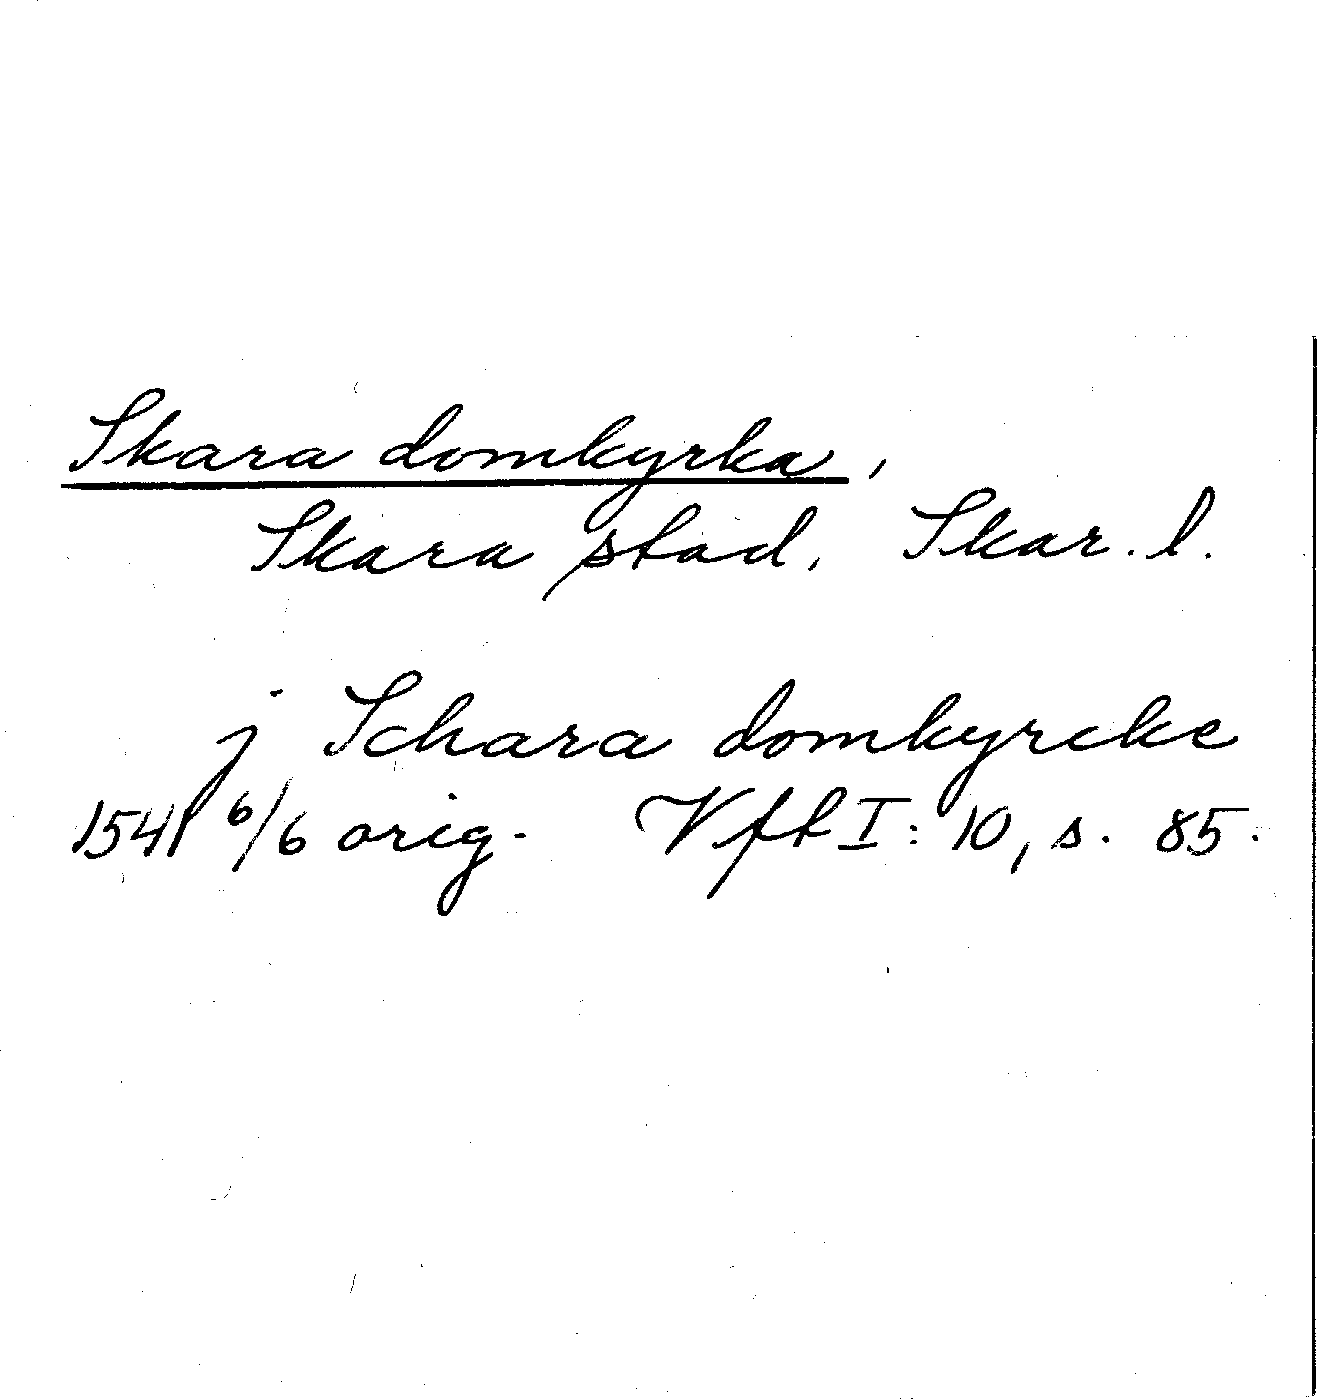 Skara domkyrka,
Skara stad, Skar. l.
j Schara domkyrcke
1541 6/6 orig. Vft I: 10, s. 85.